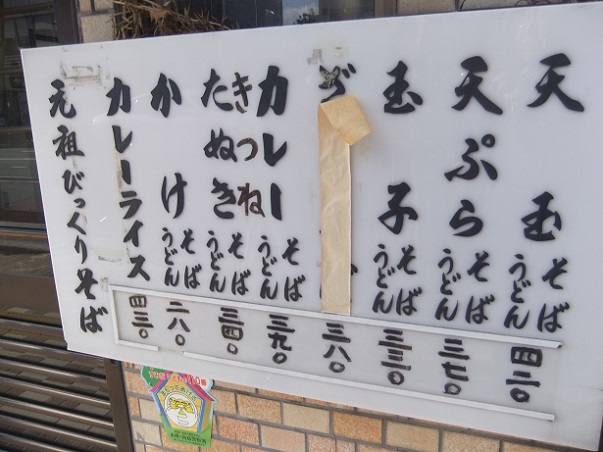 天玉 そば うどん 四二〇
天ぷら そば うどん 三七〇
玉子 そば うどん 三三〇
三八〇
カレー そば うどん 三九〇
きつね たぬき そば うどん 三四〇
かけ そば うどん 二八〇
カレーライス 四三〇
元祖びっくりそば